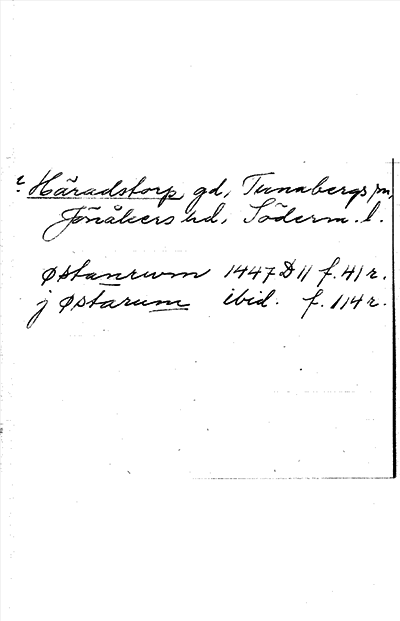 ? Häradstorp, gd, Tunabergs sn,
Jönåkers hd, Söderm. l.
Østanrwm 1447 D 11 f. 41 r.
j Østarum ibid. f. 114 r.